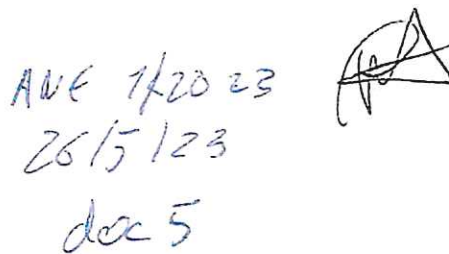 ANE 1/2023
26/5/23
doc 5